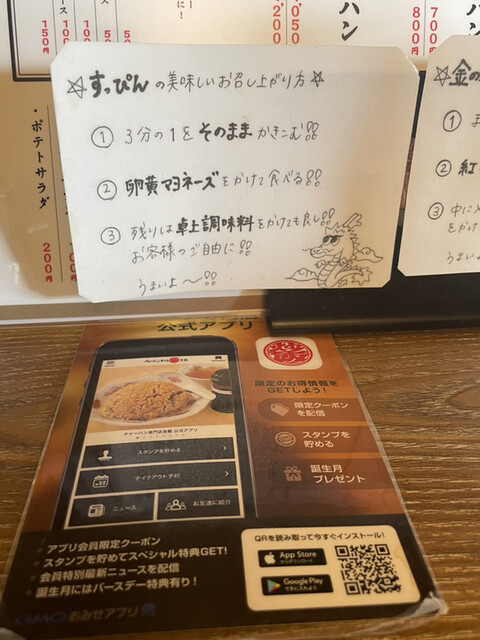 ハン
700
800
.050
.200
150円
100
50
50
・ポテトサラダ
200
☆すっぴんの美味しいお召し上がり方☆
① 3分の1をそのままかきこむ!!
② 卵黄マヨネーズをかけて食べる!!
③ 残りは卓上調味料をかけても良し!!
お客様のご自由に!!
うまいよ〜!!
☆金の
①
② 紅
③ 中に
をかけ
うまい
公式アプリ
チャーハン専門店金龍 公式アプリ
スタンプを貯める
テイクアウト予約
ニュース
お友達に紹介
限定のお得情報を
GETしよう!
限定クーポン
を配信
スタンプを
貯める
誕生月
プレゼント
・アプリ会員限定クーポン
・スタンプを貯めてスペシャル特典GET!
・会員特別最新ニュースを配信
・誕生月にはバースデー特典有り!
QRを読み取って今すぐインストール!
App Store
からダウンロード
Google Play
で手に入れよう
GMOおみせアプリ